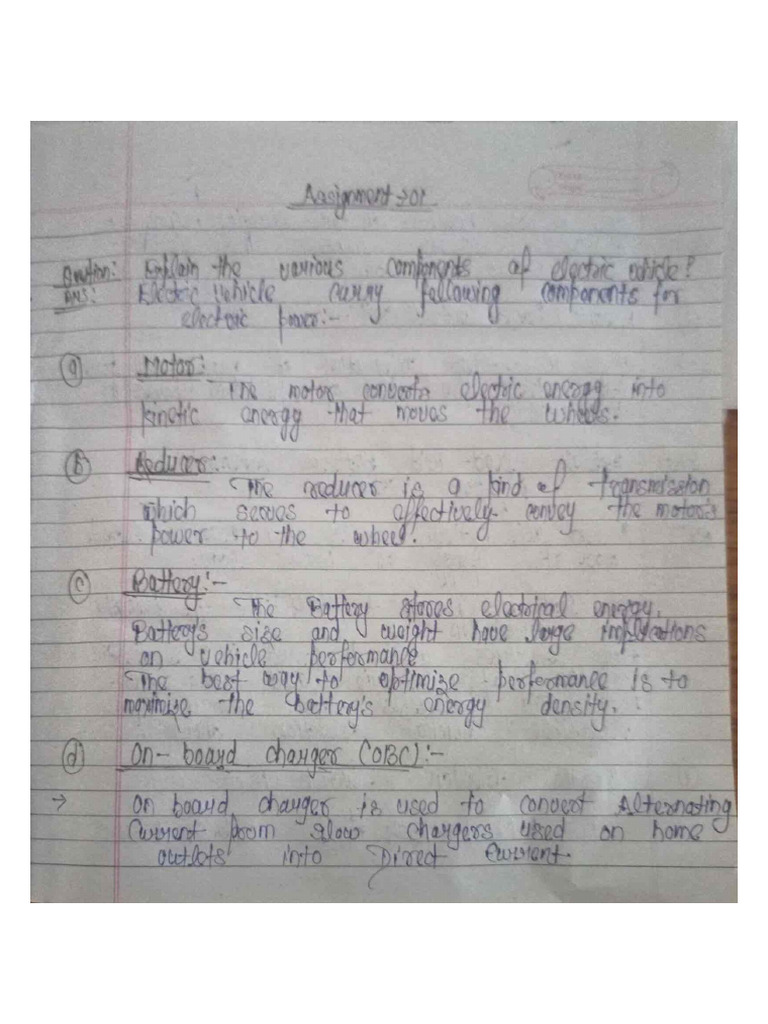 Assignment → 01
Question: Explain the various components of electric vehicle?
Ans: Electric vehicle carry following components for
electric power:-
(a) Motor:
The motor converts electric energy into
kinetic energy that moves the wheels.
(b) Reducer:
The reducer is a kind of transmission
which serves to effectively convey the motor's
power to the wheel.
(c) Battery:-
The Battery stores electrical energy.
Battery's size and weight have large implications
on vehicle performance
The best way to optimize performance is to
maximize the battery's energy density.
(d) On-board charger (OBC):-
→ On board charger is used to convert Alternating
Current from slow chargers used on home
outlets into Direct Current.